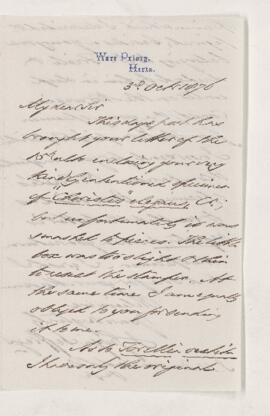 Ware Priory,
Herts.
3d Oct. 1876
My dear Sir
This days post has
brought your letter of the
15th ulto enclosing your very
kindly intentioned specimen
of "Choristes elegans," C.;
but unfortunately it was
smashed to pieces. The little
box was too slight & thin
to resist the stamper. At
the same time I am equally
obliged to you for sending
it to me.
As to Torellia vestita
I have only the original